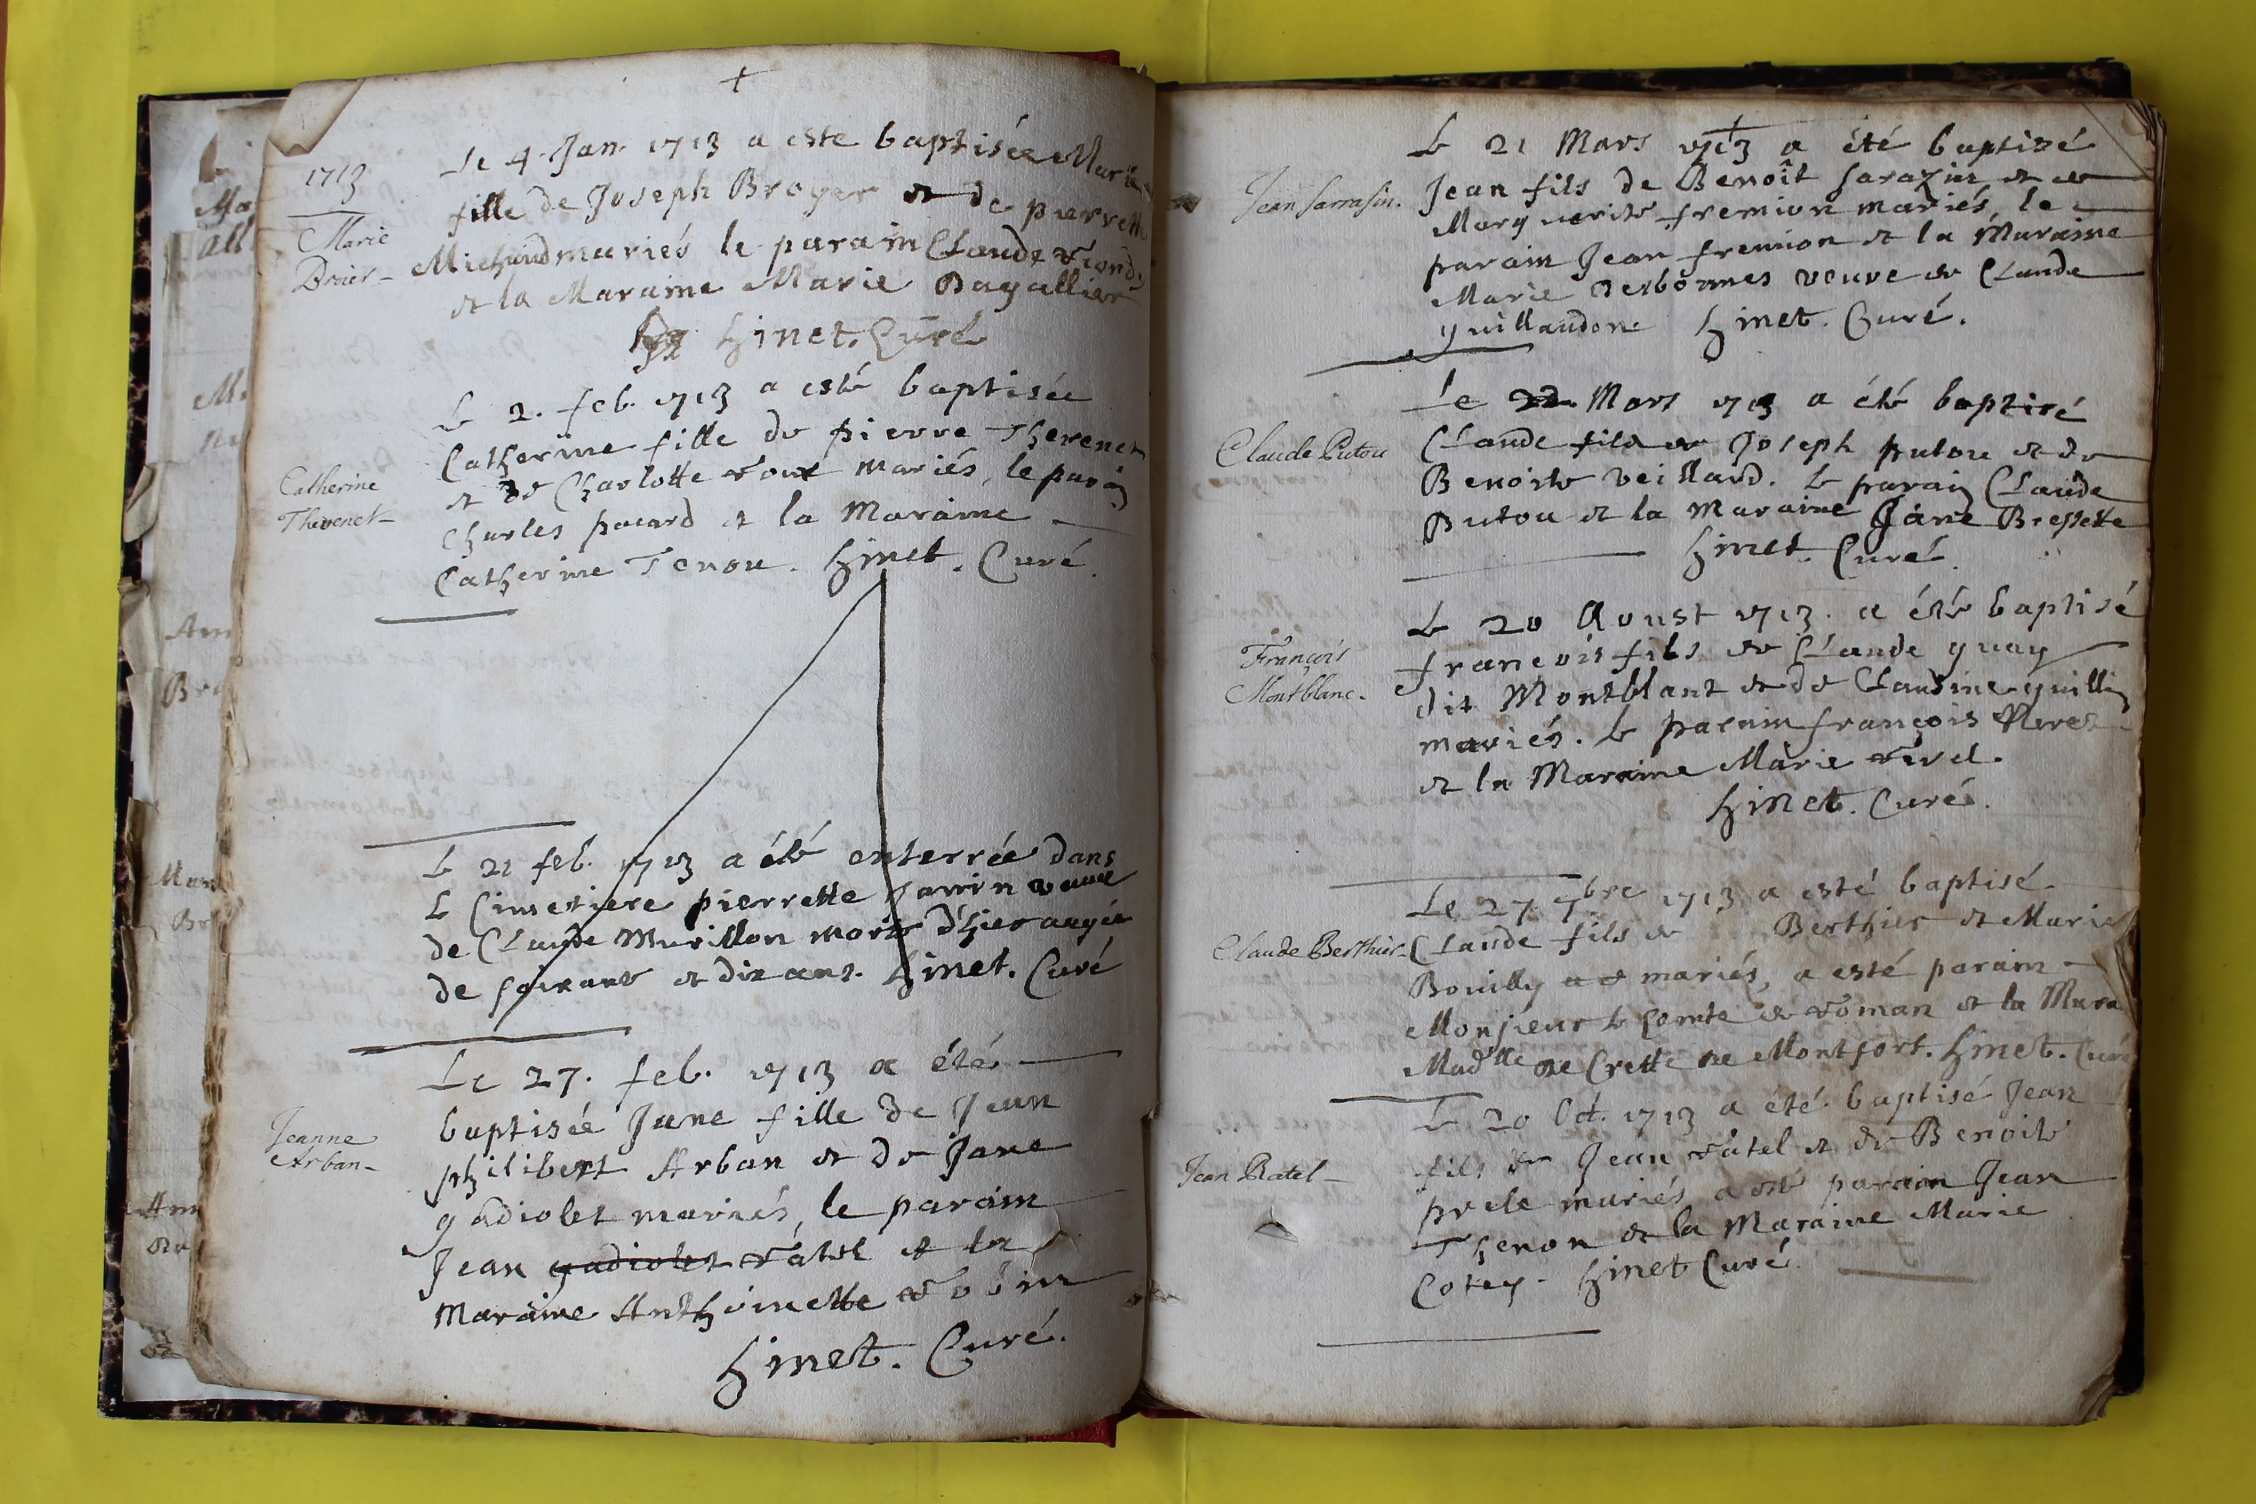 1713
Marie
Broier
Le 4. Jan. 1713 a este baptisée Marie
fille de Joseph Broyer et de purrette
Michaud mariés le parain Claude
et la Maraine Marie Bagallier
hinet. Curé
Catherine
Thevenet
Le 2. feb. 1713 a esté baptisée
Catherine fille de pierre Thevenet
et de Charlotte roux mariés, le parain
Charles pacard et la Maraine
Catherine Tenou. hinet. Curé.
Le 21 feb. 1713 a été enterrée dans
le Cimetiere pierrette Jarrin veuve
de Claude Murillon morte d'hier augée
de soixante et dix ans. hinet. Curé
Jeanne
Arban
Le 27. feb. 1713 a été
baptisée Jane fille de Jean
philibert Arban et de Jane
gadiolet mariés, le parain
Jean gadiolet ratel et la
Maraine Anthoinette robin
hinet. Curé.
Jean Sarrasin.
Le 21 Mars 1713 a été baptizé
Jean fils de Benoît sarazin et de
Marguerite fremion mariés, le
parain Jean fremion et la Maraine
Marie Desbonnes veuve de Claude
guillaudon hinet. Curé.
Claude Putou
Le 22. Mars 1713 a été baptisé
Claude fils de Joseph putou et de
Benoite veillard. le parain Claude
Putou et la Maraine Jane Bressette
hinet. Curé.
François
Montblanc.
Le 20 Aoust 1713. a été baptisé
françois fils de Claude guay
dit Montblant et de Claudine guillin
mariés. le parain françois
et la Maraine Marie rivel.
hinet. Curé.
Claude Berthier
Le 27 7bre 1713 a esté baptisé
Claude fils de Berthier et Marie
Bouilly mariés, a esté parain
Monsieur le Comte de roman et la Mara
Madlle de Crette de Montfort. hinet. Curé
Jean Ratel
Le 20 Oct. 1713 a été baptisé Jean
fils de Jean ratel et de Benoite
prele mariés a été parain Jean
Thenon et la Maraine Marie
Cotey. hinet Curé.